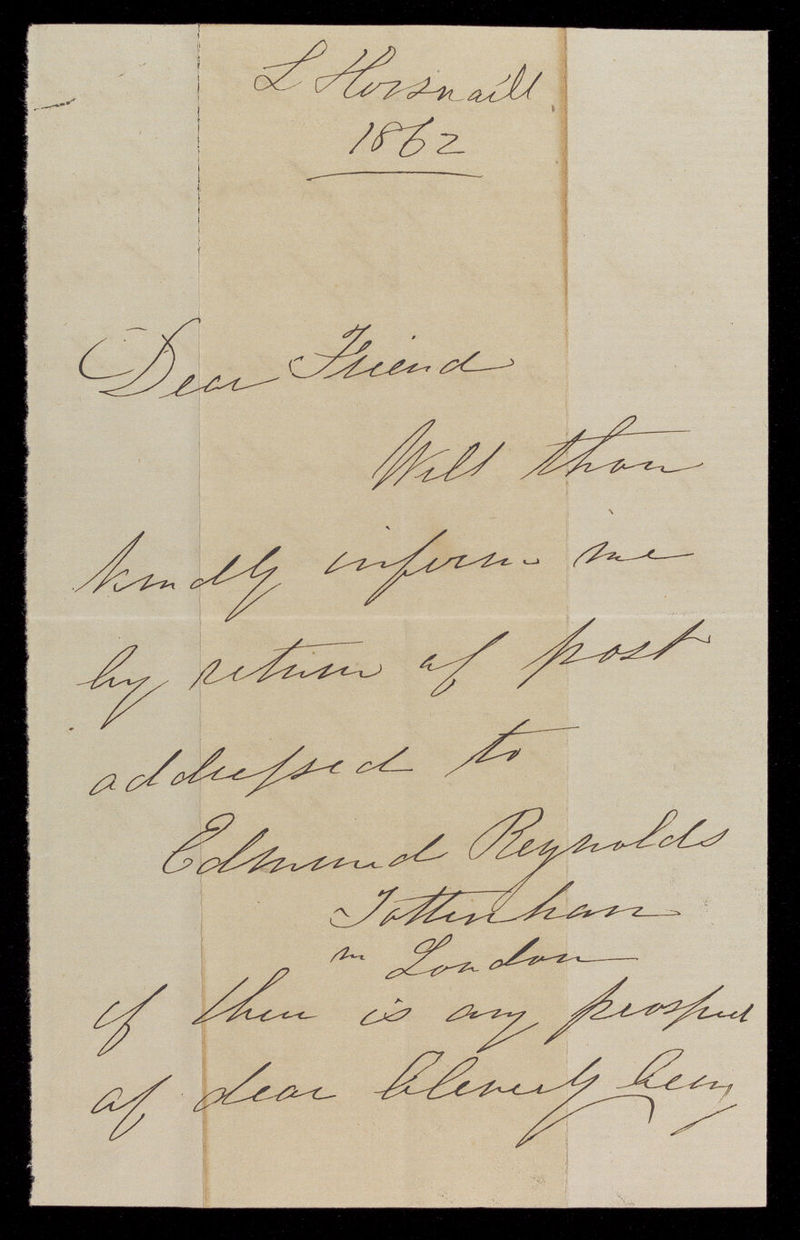 L Horsnaill
1862
Dear Friend
Will thou
kindly inform me
by return of post
addressed to
Edmund Reynolds
Tottenham
nr London
if there is any prospect
of dear Cleverly being